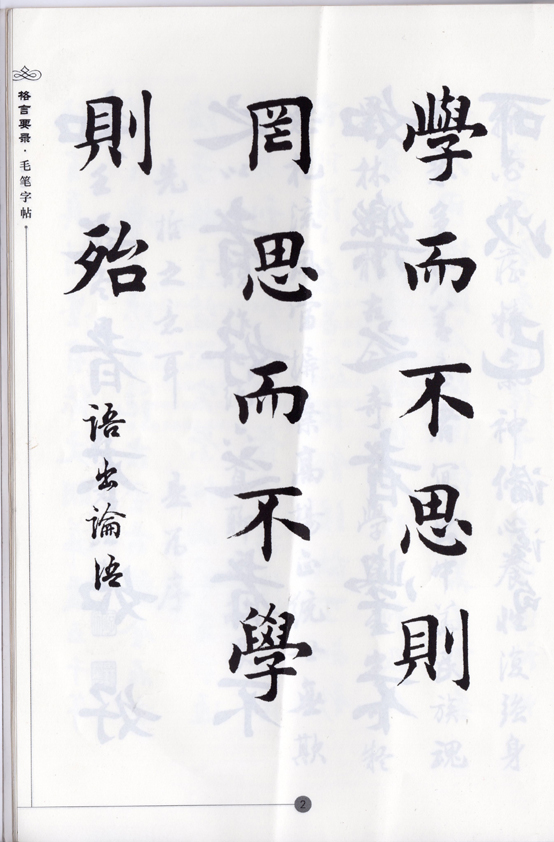 學而不思則
罔思而不學
則殆
语出論语
格言要录·毛笔字帖
2